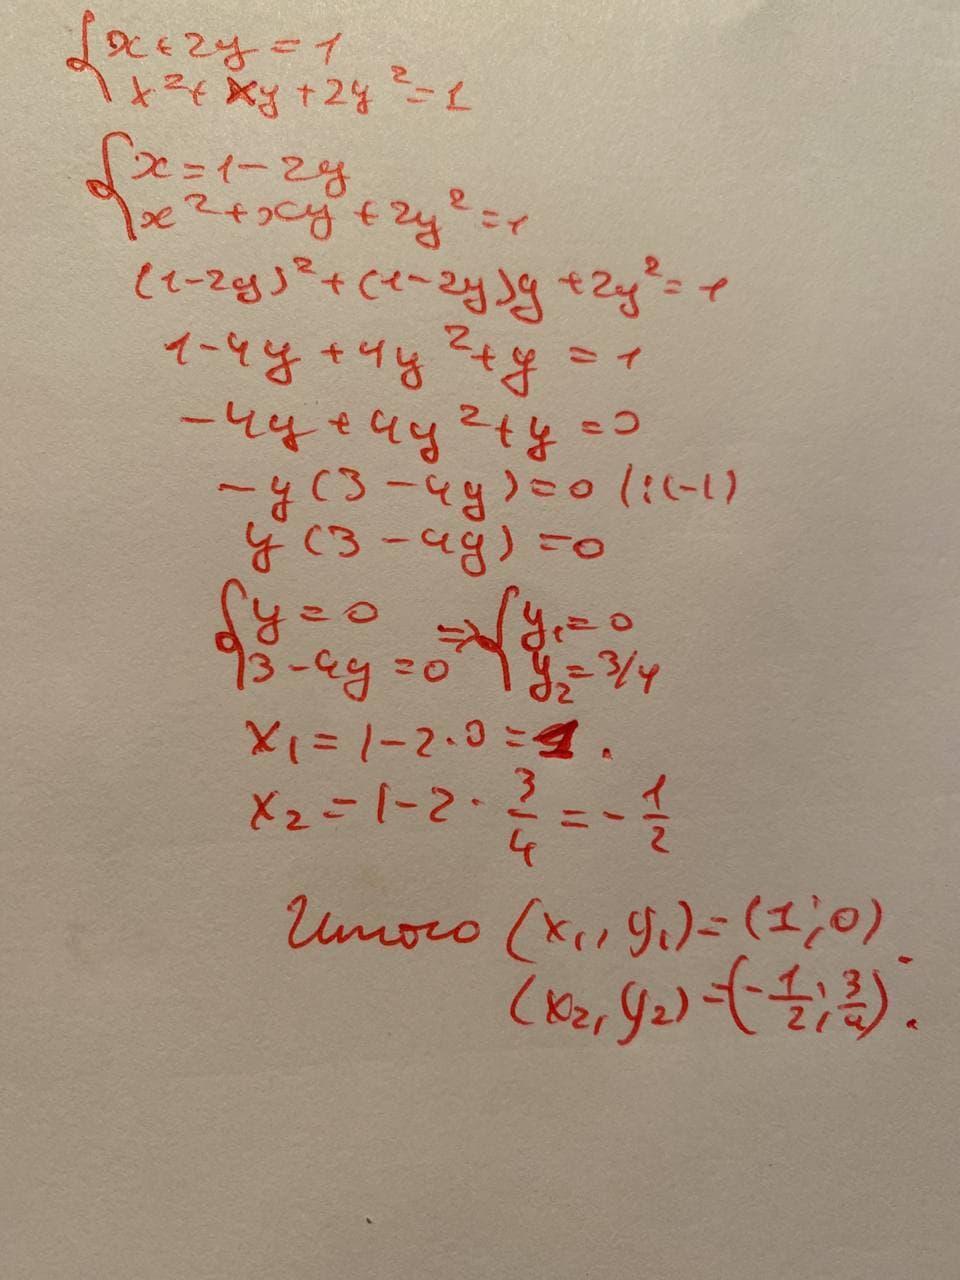 { x + 2y = 1
x² + xy + 2y² = 1
{ x = 1 - 2y
x² + xy + 2y² = 1
(1-2y)² + (1-2y)y + 2y² = 1
1 - 4y + 4y² + y = 1
- 4y + 4y² + y = 0
- y (3 - 4y) = 0 |:(-1)
y (3 - 4y) = 0
{ y = 0 => { y₁ = 0
3 - 4y = 0 y₂ = 3/4
x₁ = 1 - 2·0 = 1.
x₂ = 1 - 2 · 3/4 = - 1/2
Итого (x₁, y₁) = (1; 0)
(x₂, y₂) = (- 1/2; 3/4).